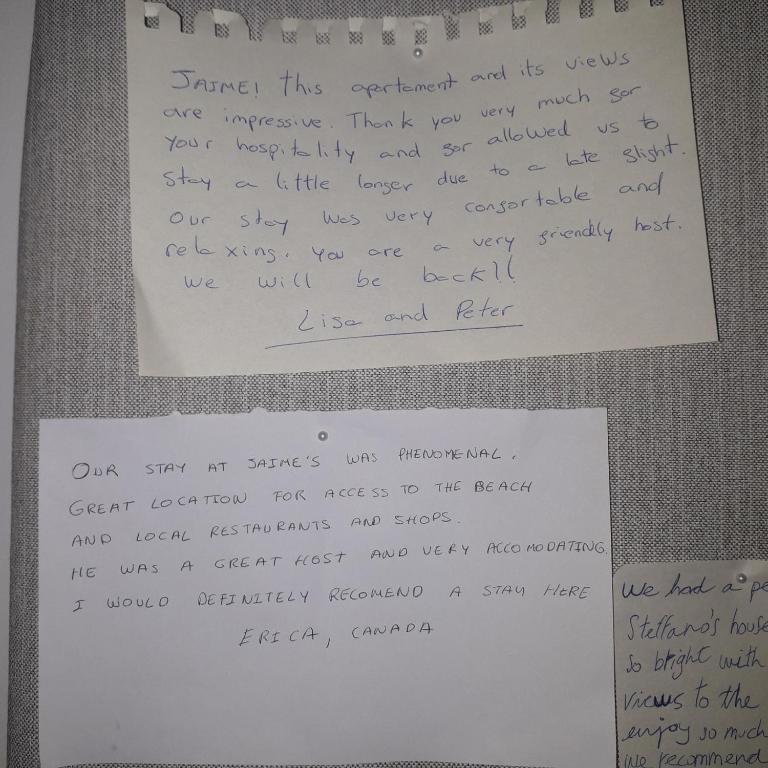 JAIME! this apartement and its views
are impressive. Thank you very much for
your hospitality and for allowed us to
stay a little longer due to a late flight.
Our stay was very confortable and
relaxing. You are a very friendly host.
We will be back!!
Lisa and Peter
OUR STAY AT JAIME'S WAS PHENOMENAL.
GREAT LOCATION FOR ACCESS TO THE BEACH
AND LOCAL RESTAURANTS AND SHOPS.
HE WAS A GREAT HOST AND VERY ACCOMODATING.
I WOULD DEFINITELY RECOMEND A STAY HERE
ERICA, CANADA
We had a pe
Steffano's house
so bright with
views to the
enjoy so much
we recommend